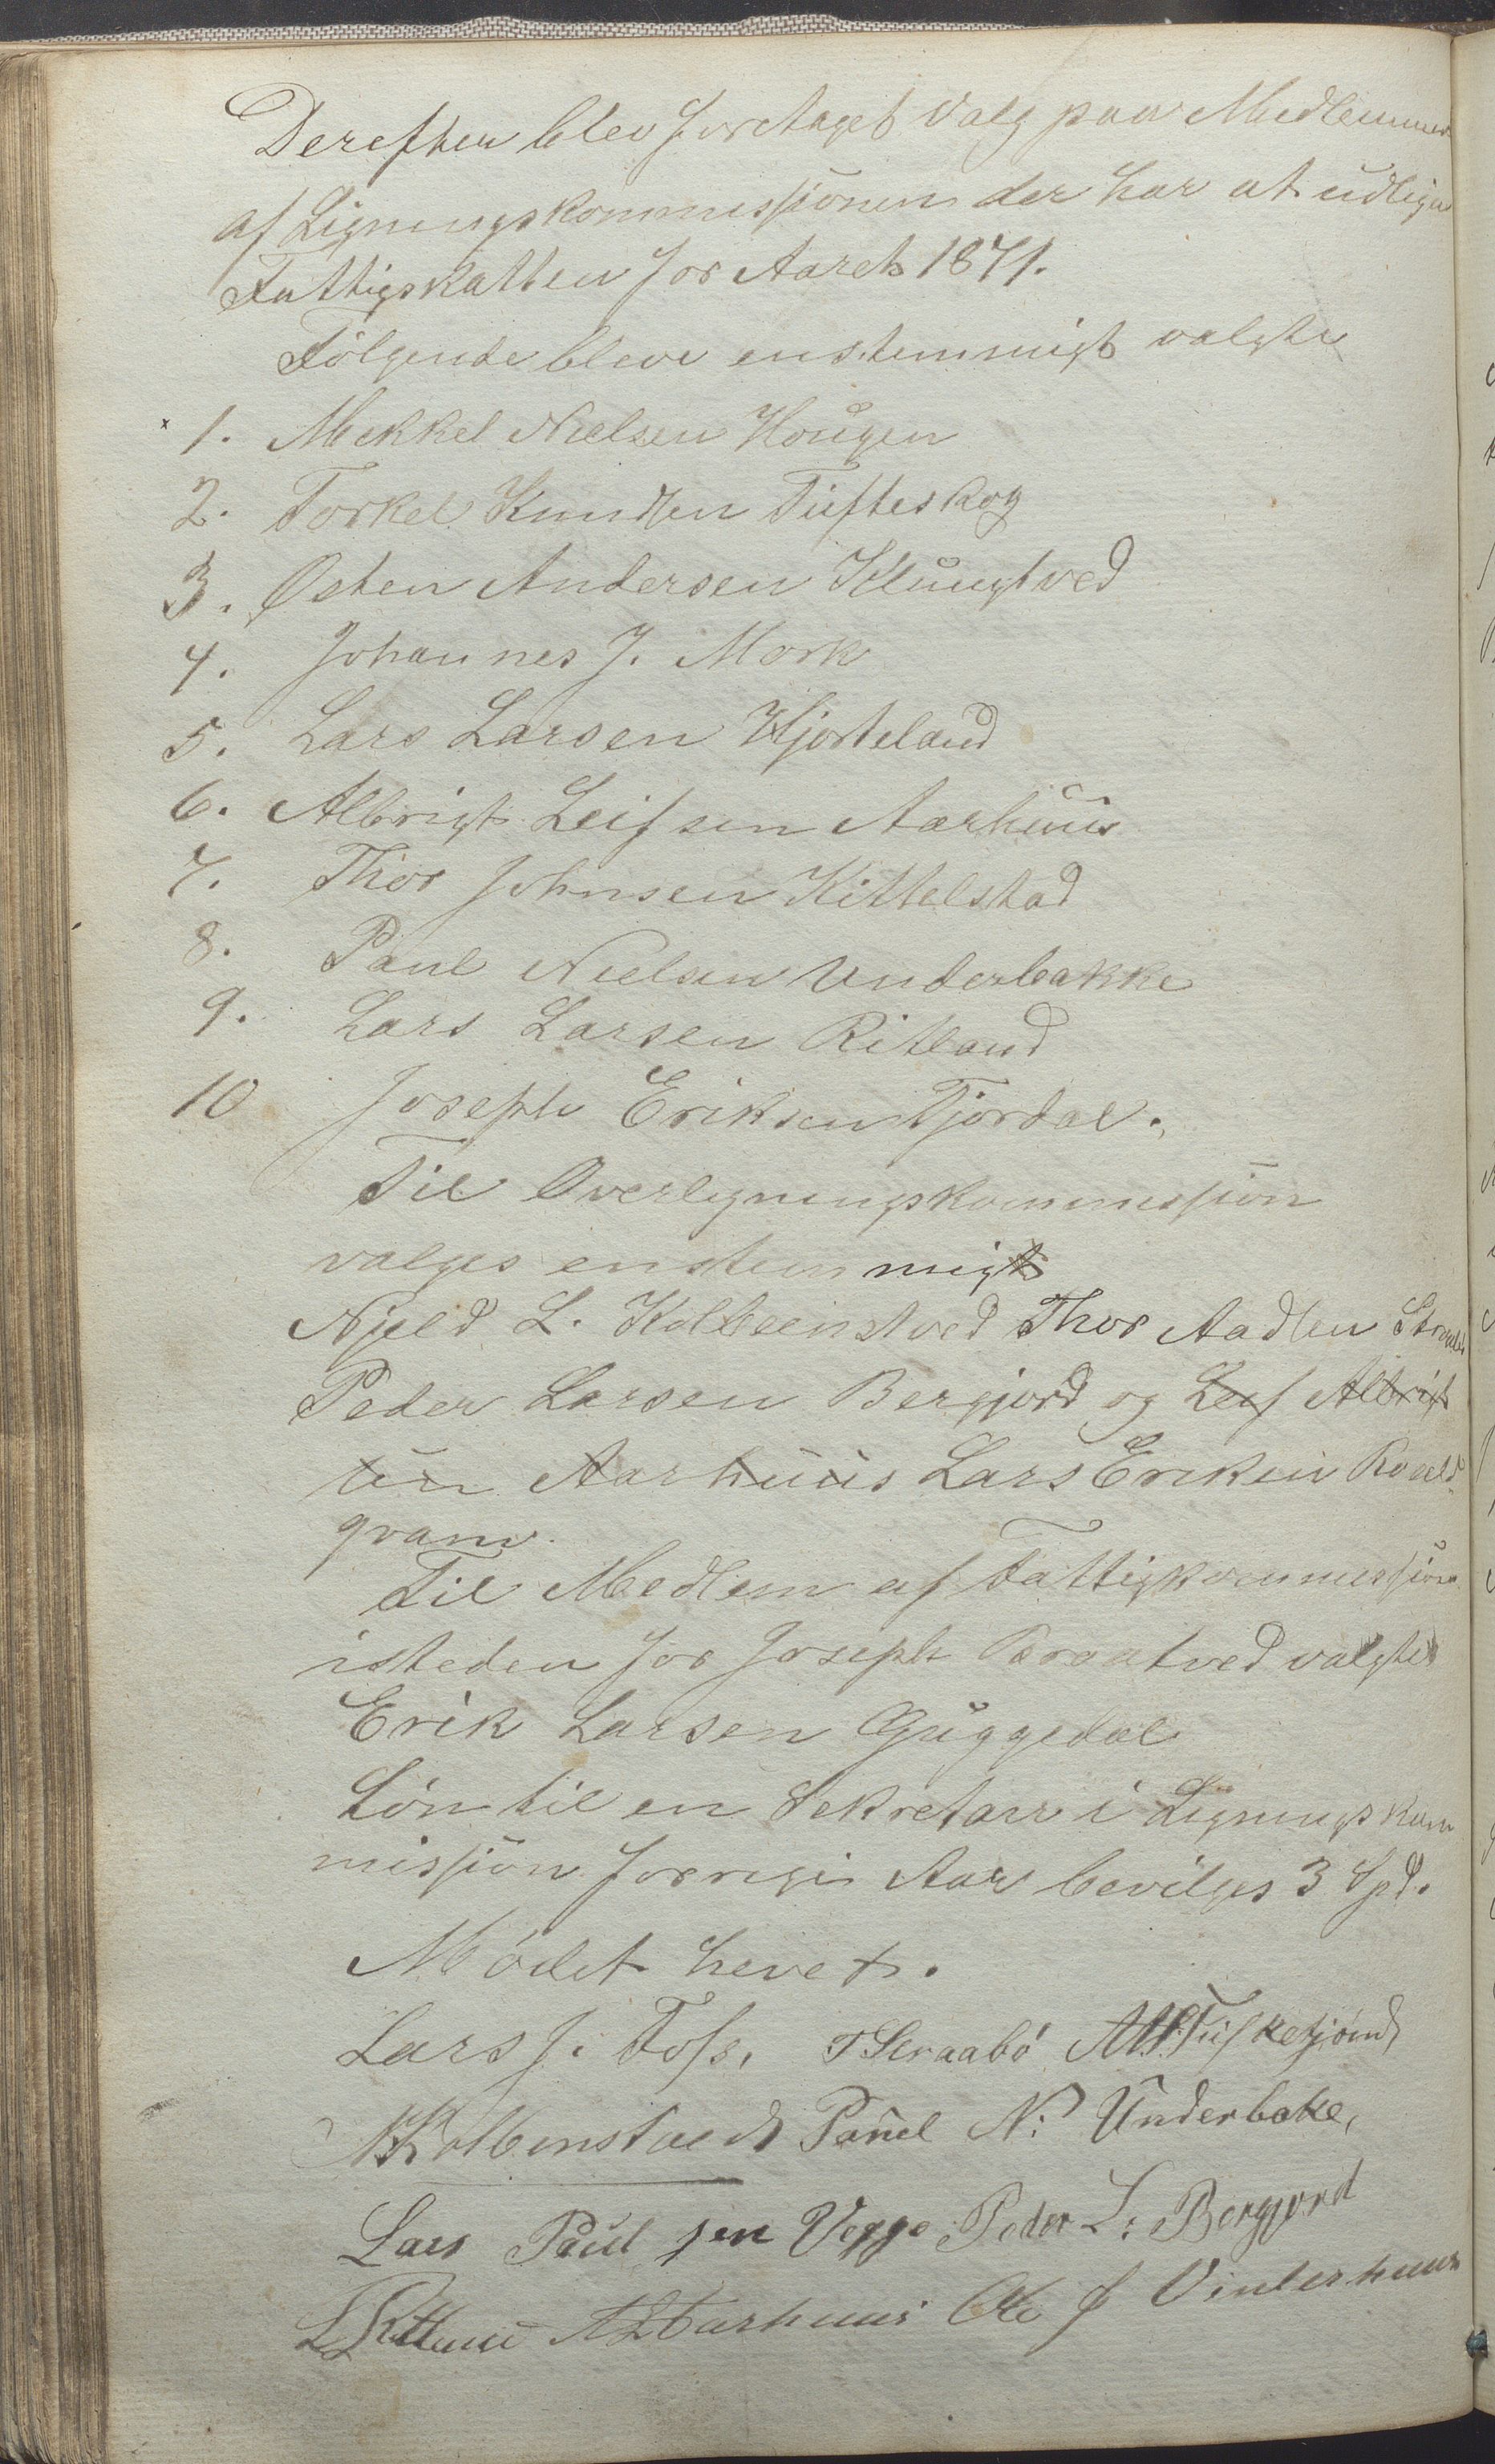 Derefter blev foretaget Valg paa Medlemmer
af Ligningskommissionen der har at udligne
Fattigskatten for Aaret 1871.
Følgende bleve enstemmigt valgte
x 1. Mekkel Nielsen Hougen
2. Torkel Knudsen Tufteskog
3. Østen Andersen Klungtved
4. Johannes J. Mørk
5. Lars Larsen Hjorteland
6. Albrigt Leifsen Aarhuus
7. Thor Johnsen Kittelstad
8. Paul Nielsen Underbakke
9. Lars Larsen Ritland
10 Joseph Eriksen Fjordal.
Til Overligningskommission
valges enstemmigt
Njeld L. Kolbeinstved Thor Aadsen
Peder Larsen Bergjord og Leif Albrigt
sen Aarhuus Lars Eriksen Roald
qvam.
Til Medlem af Fattigkommission
isteden for Joseph Braatved valgtes
Erik Larsen Guggedal
Løn til en Sekretær i Ligningskom
mission forrige Aar bevilges 3 Spd.
Mødet hevet.
Lars J. Foss. T Straabø
N Kolbenstvedt Paul N: Underbake,
Lars Paulsen Vegge Peder L: Bergjord
L L Ritland A L Aarhuus Ole J Vinterhuus